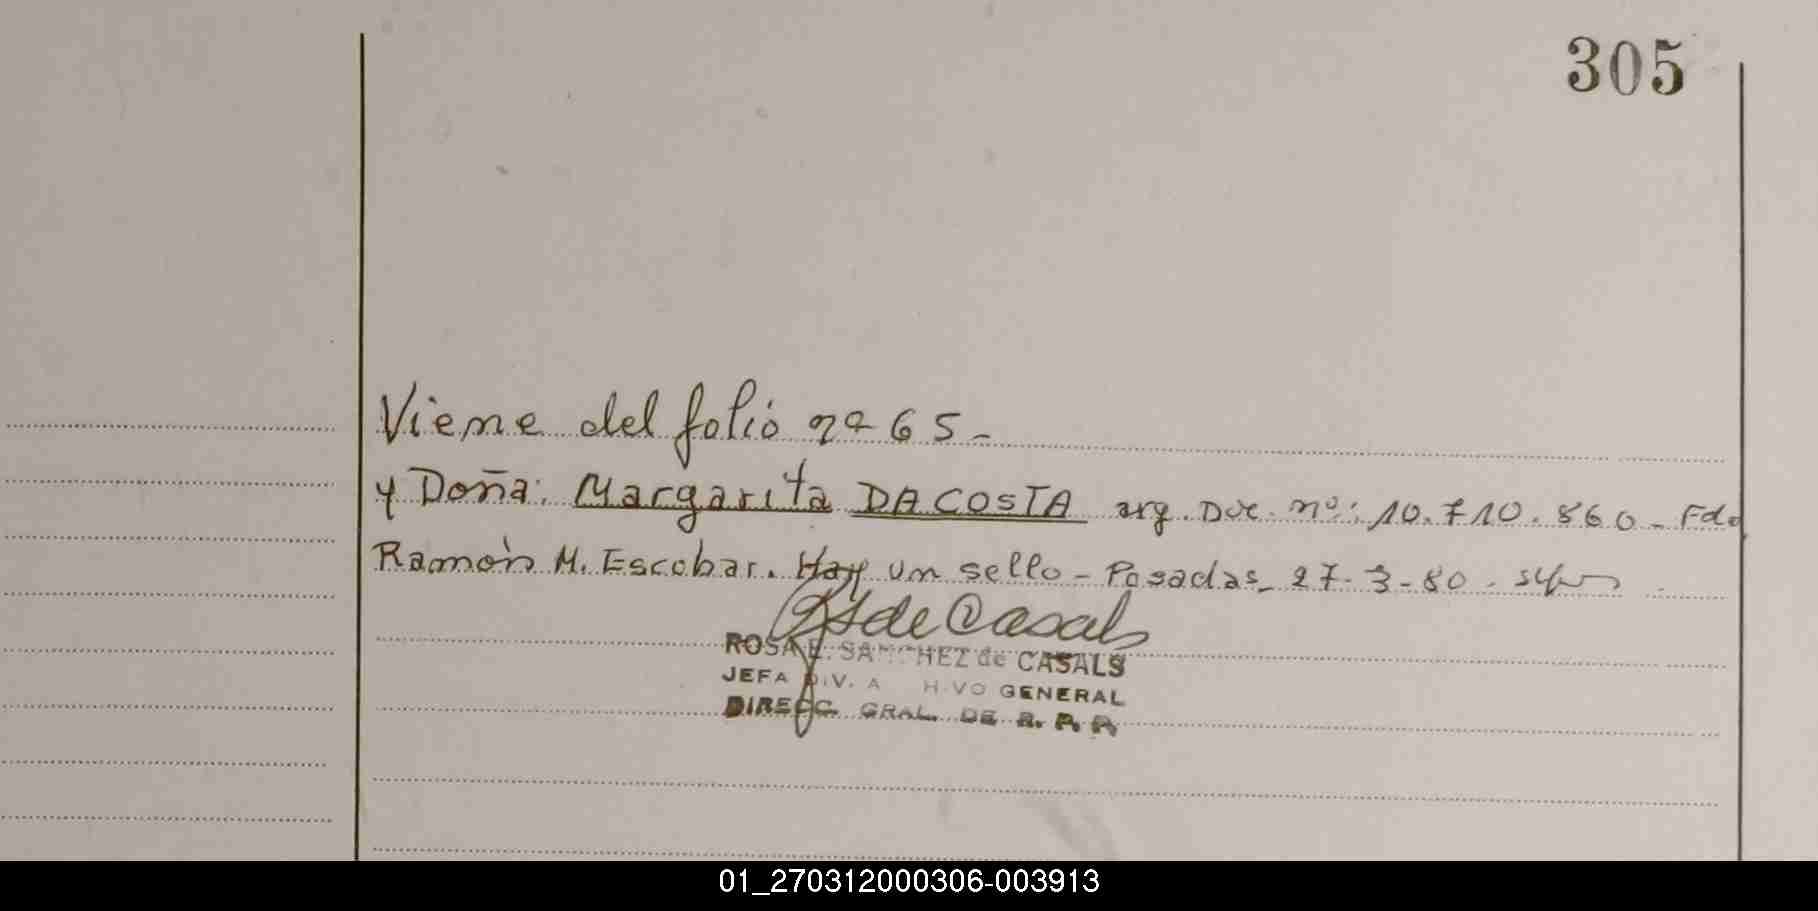 305
Viene del folio nº 65-
y Doña: Margarita DA COSTA arg. Doc. nº: 10.710.860 - Fdo
Ramón M. Escobar. Hay un sello - Posadas - 27-3-80 -
RS de Casals
ROSA E. SANCHEZ de CASALS
JEFA DIV. A HIVO GENERAL
DIRECC. GRAL. DE R. P. P.
01_270312000306-003913